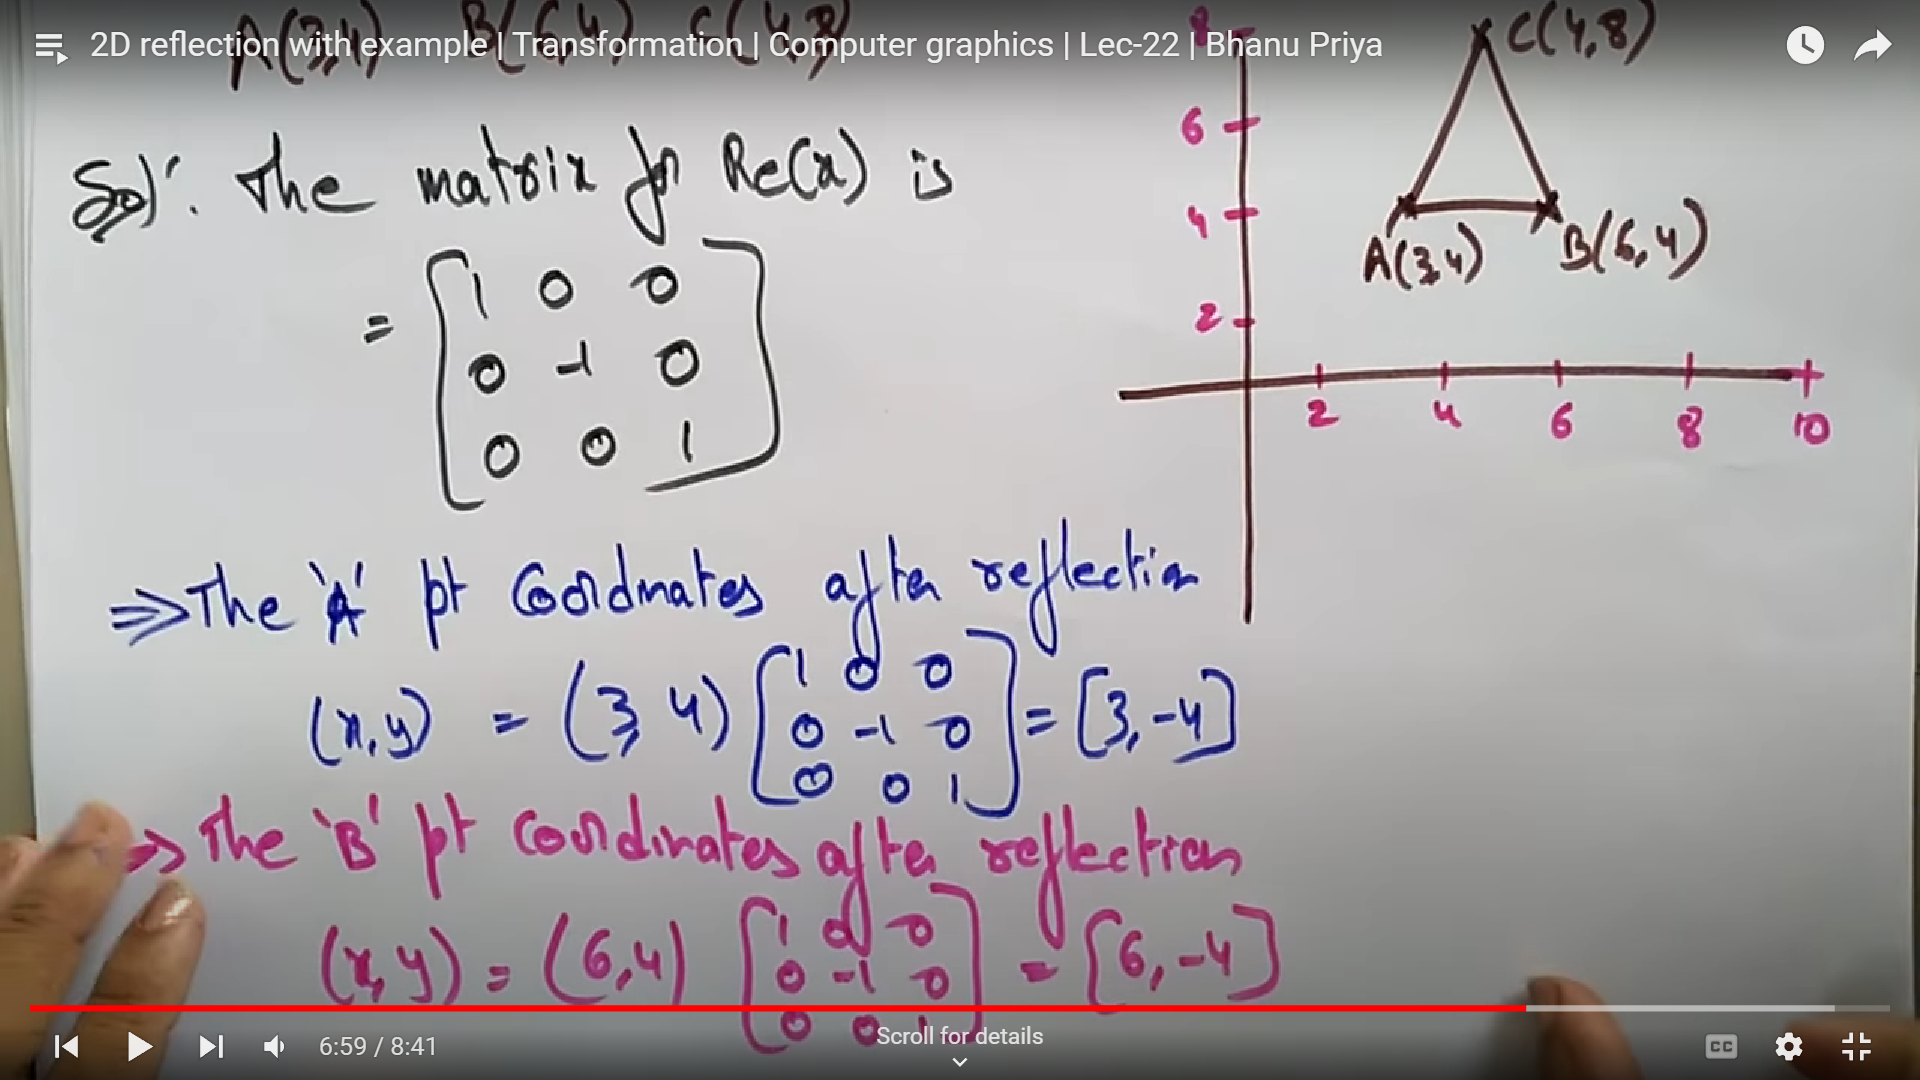 2D reflection with example | Transformation | Computer graphics | Lec-22 | Bhanu Priya
A(3,4) B(6,4) C(4,8)
Sol: The matrix for Re(x) is
= [1 0 0
0 -1 0
0 0 1]
⇒ The 'A' pt coordnates after reflection
(x,y) = (3,4) [1 0 0
0 -1 0
0 0 1] = [3,-4]
⇒ The 'B' pt coordinates after reflection
(x,y) = (6,4) [1 0 0
0 -1 0
0 0 1] = [6,-4]
8
6
4
2
2 4 6 8 10
C(4,8)
A(3,4)
B(6,4)
6:59 / 8:41
Scroll for details
CC